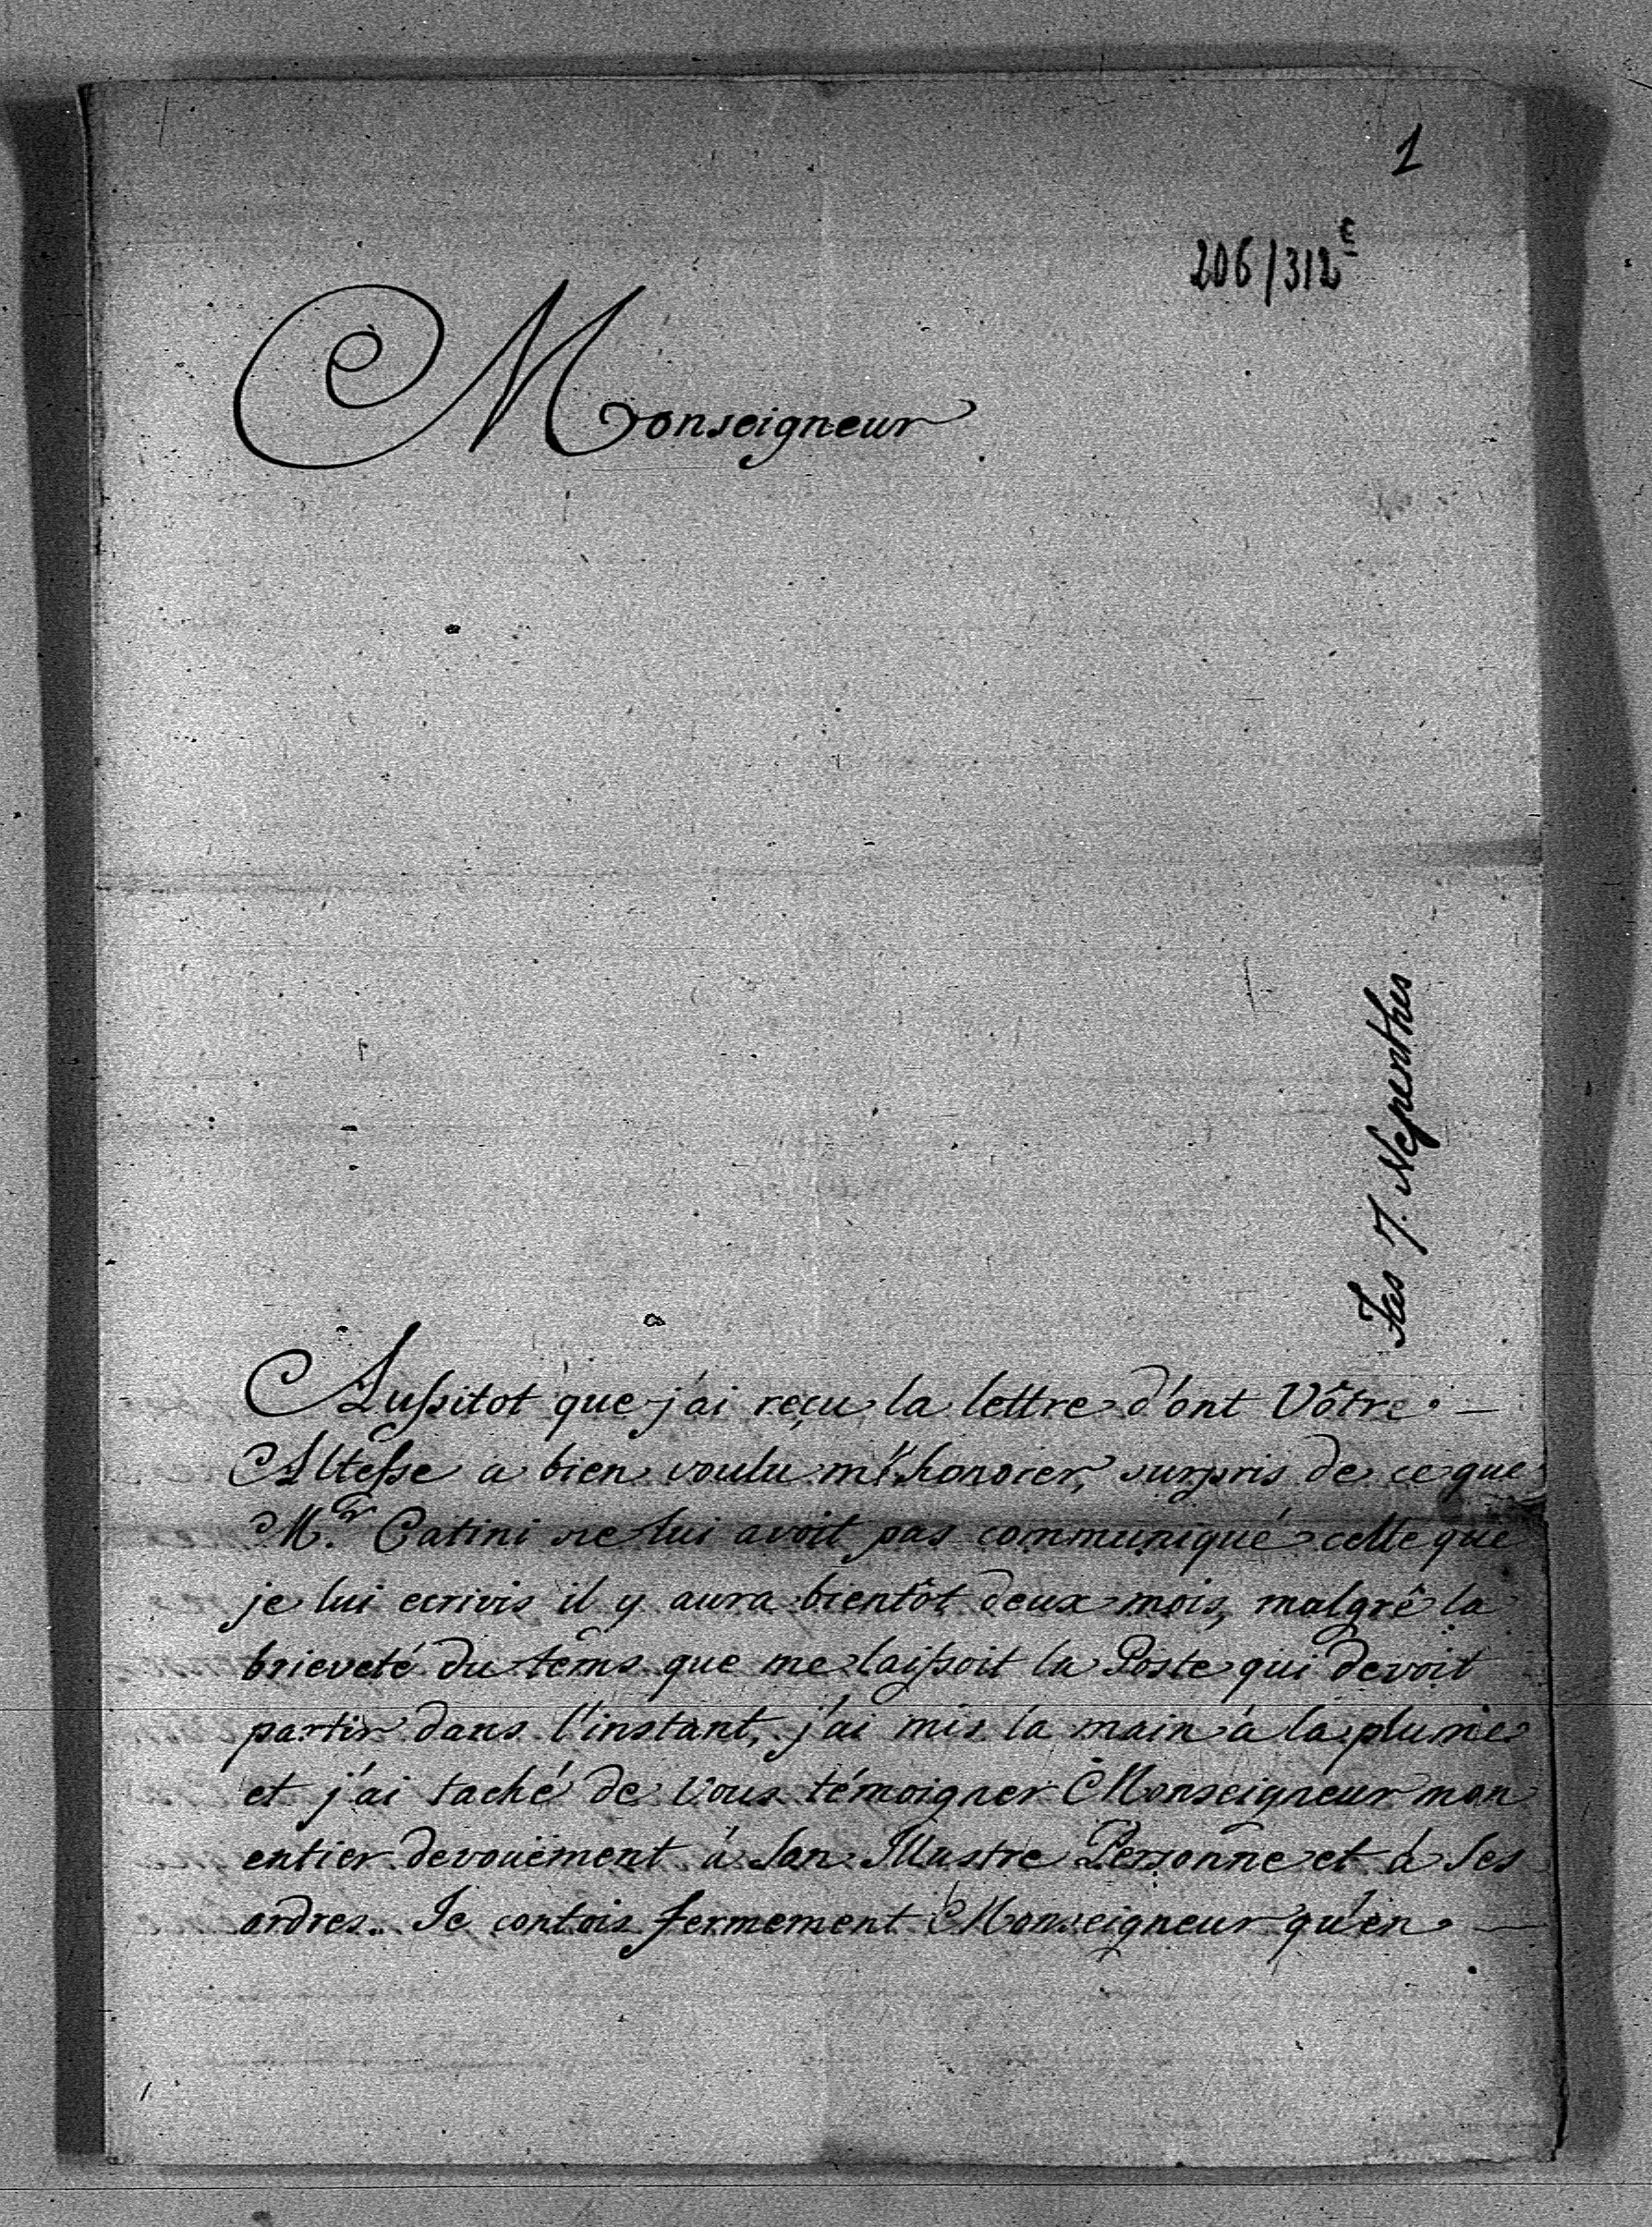 1
206/312 E
Monseigneur
Fas 7. Nepenthes
Aussitot que j'ai reçu la lettre d'ont Vôtre —
Altesse a bien voulu m'honorer, surpris de ce que
M.r Catini ne lui avoit pas communiqué celle que
je lui ecrivis il y aura bientôt deux mois, malgrê la
brieveté du tems que me laissoit la Poste qui devoit
partir dans l'instant, j'ai mis la main à la plume
et j'ai taché de Vous témoigner Monseigneur mon
entier devouëment à Son Illustre Personne et à Ses
ordres. Je contois fermement Monseigneur qu'en —